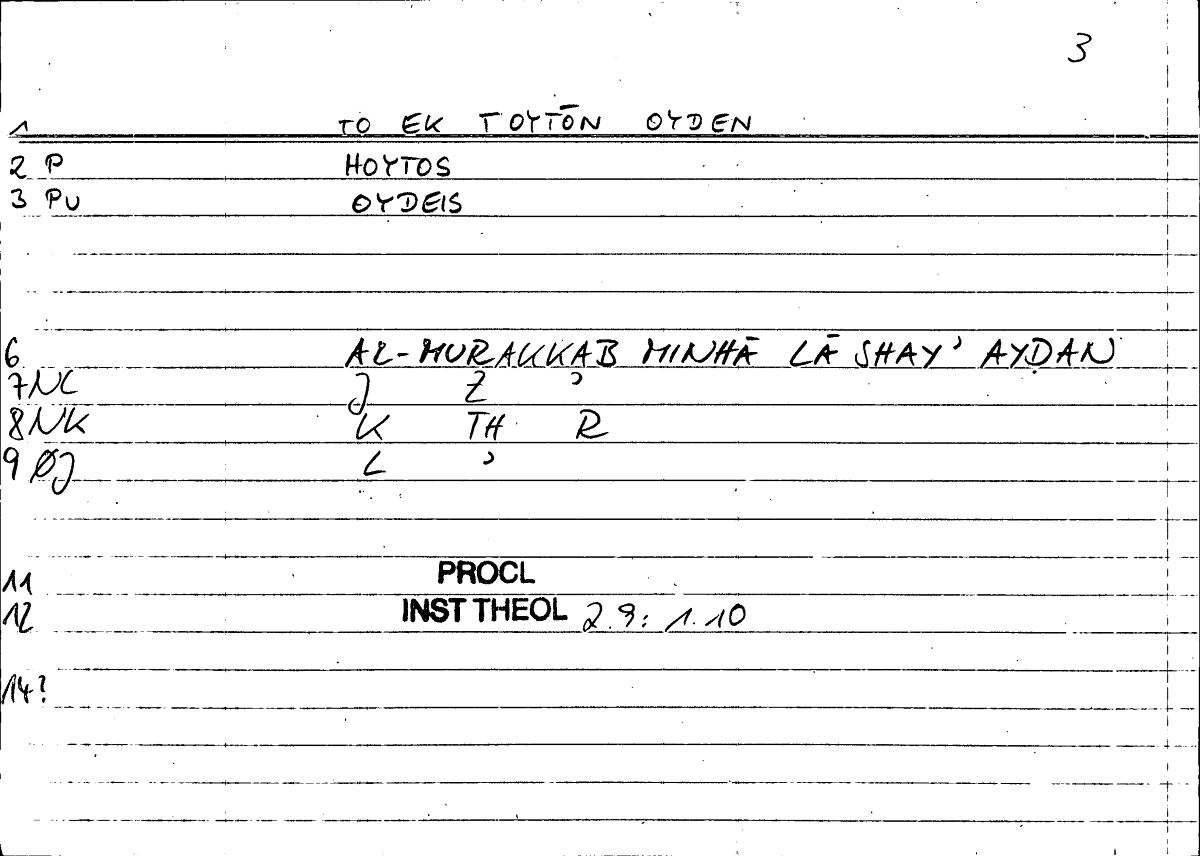 3
1 TO EK TOYTŌN OYDEN
2 P HOYTOS
3 PU OYDEIS
6 AL-MURAKKAB MINHĀ LĀ SHAY' AYḌAN
7 NC J Z '
8 NK K TH R
9 ØJ L '
11 PROCL
12 INST THEOL 2.9: 1.10
14?